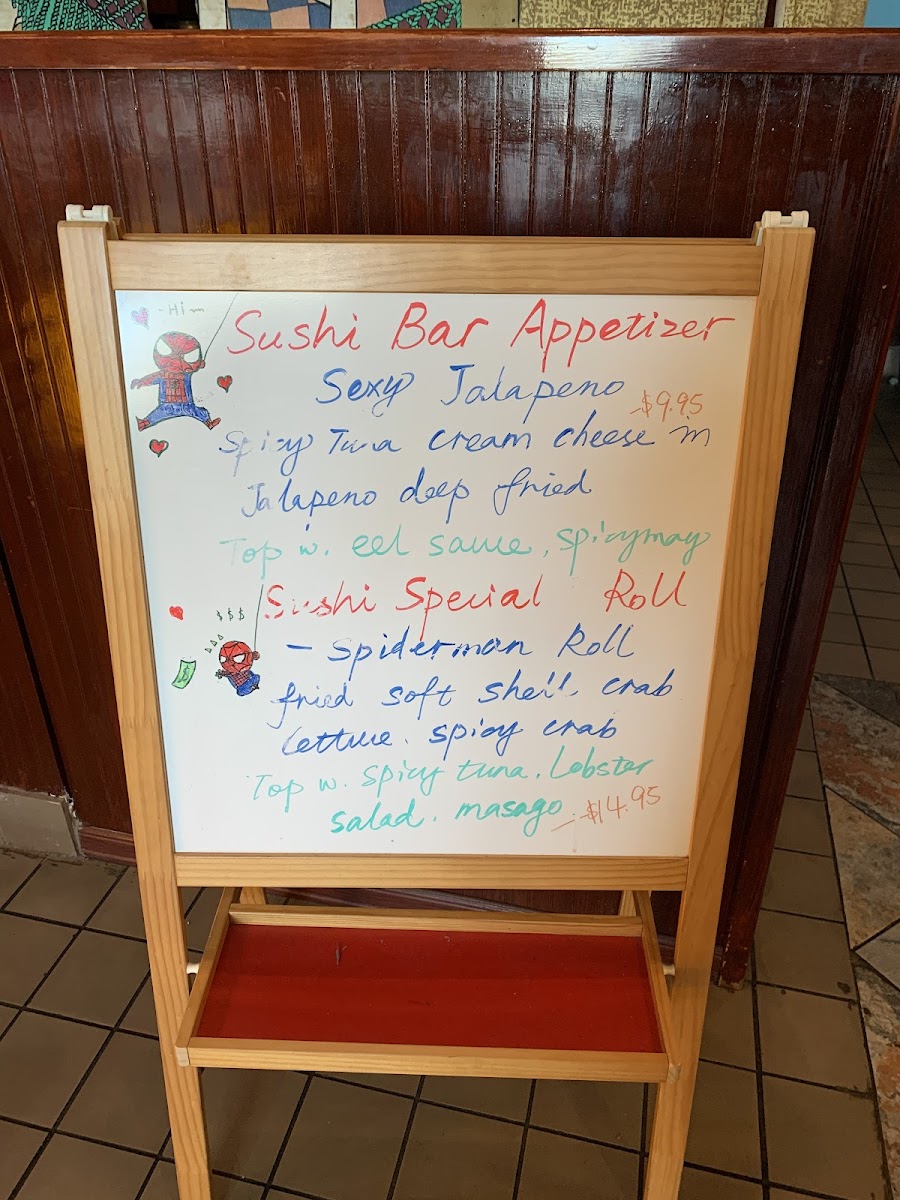 -Hi~
Sushi Bar Appetizer
Sexy Jalapeno
-$9.95
Spicy Tuna cream cheese in
Jalapeno deep fried
Top w. eel sauce, spicymay
Sushi Special Roll
$$$
- Spiderman Roll
$
fried soft shell crab
lettuce. spicy crab
Top w. spicy tuna. Lobster
salad. masago
-$14.95